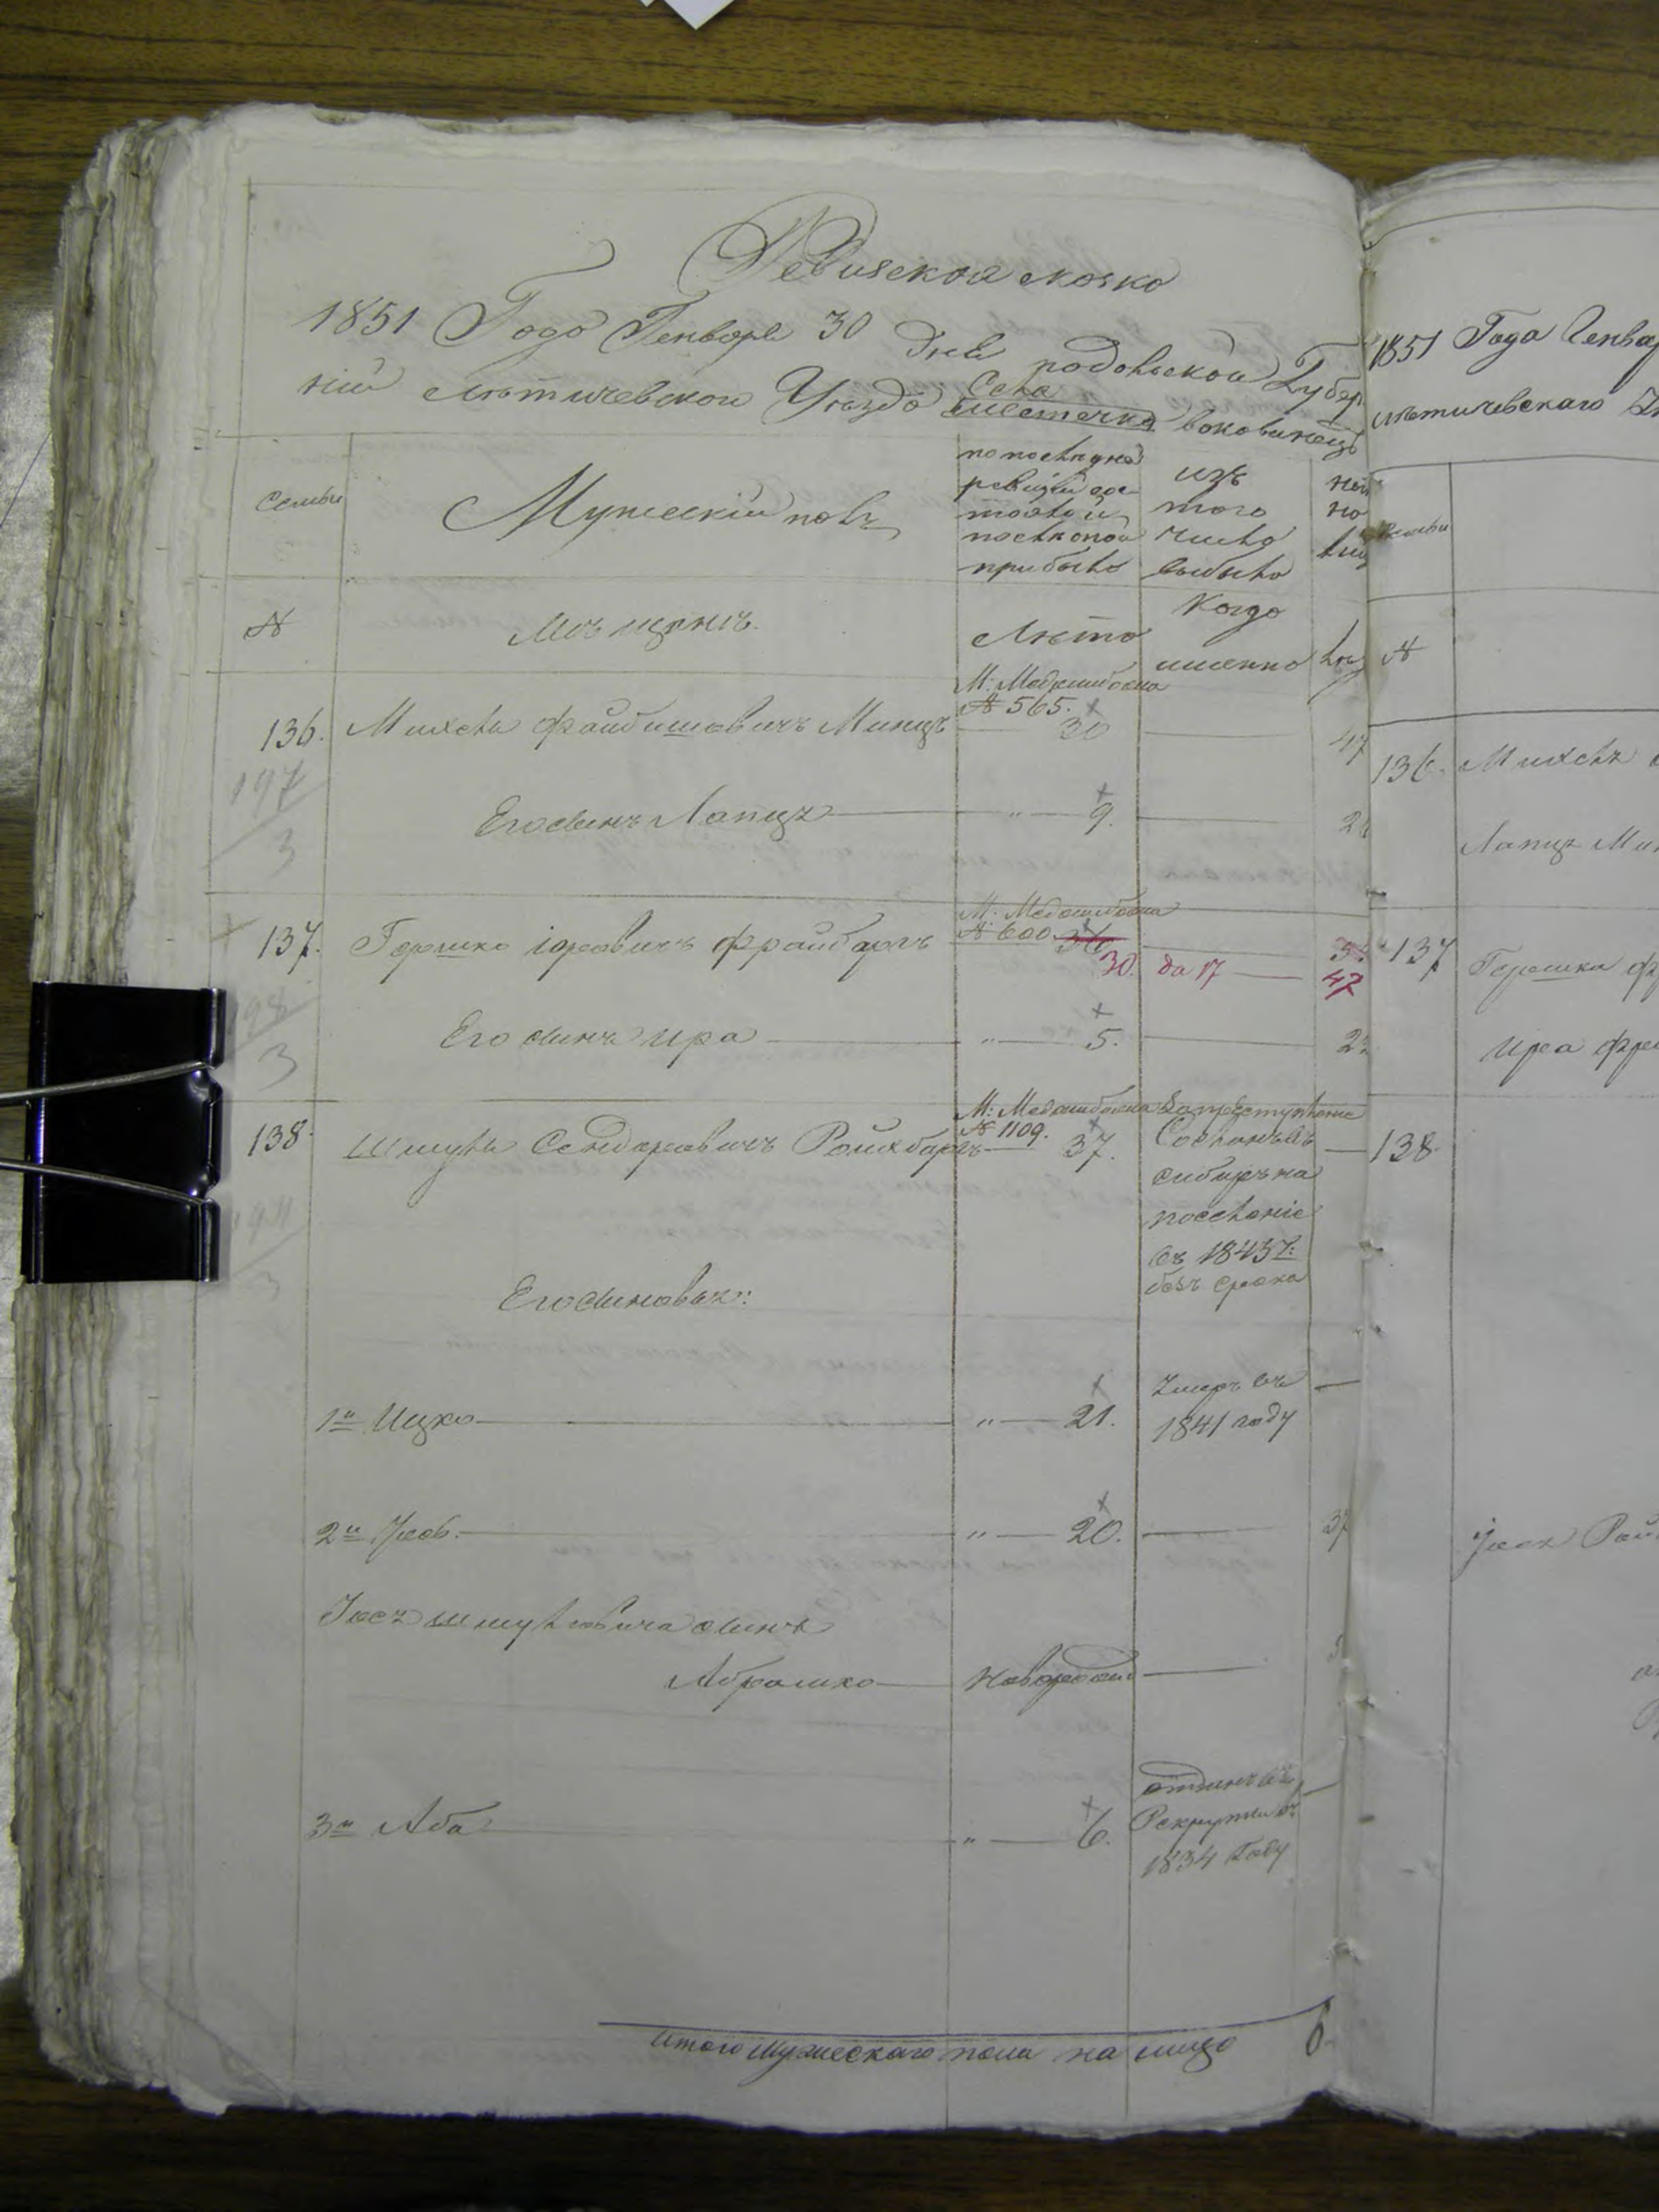 Ревизская скозка
1851 Года Генворя 30 дня подольской Губер
ній лѣтичевскои Уѣзда Села местечка воковинец
Семьи
Мужескій полъ
по последней
ревизіи сос
тояло и
послѣ оной
прибыло
изъ
того
числа
выбыло
ны
но
лиц
№
Мѣщанъ.
Лѣта
Когда
именно
лѣ
136. Михель Файбишовичъ Минцъ
М: Меджибожа
№ 565.
30
47
197
3
Его сынъ Лапицъ
" 9.
2
137. Гершко іоревичъ Фрайбарг
М: Меджибожа
№ 600
30. да 17 47
198
3
Его сынъ ира
" 5.
2
138. Шмуль Сендеровичъ Ройхбаргъ
М: Меджибожа
№ 1109.
37.
За преступленіе
Сосланъ въ
сибирь на
поселеніе
въ 1843 г:
безъ срока
Его сыновья:
1й Ицко
" 21.
Умеръ въ
1841 году
2й Іось.
" 20.
37
Іося шмулевича сынъ
Абрашко
Новорожд
5
3й Аба
" 6.
отданъ въ
Рекруты въ
1834 Году
итого мужескаго пола на лицо 6.
1851 Года Генвар
лѣтичевскаго
Семьи
№
136. Михель
Лапиць Ми
137
Гершка ф
ира фре
138.
іося Рай